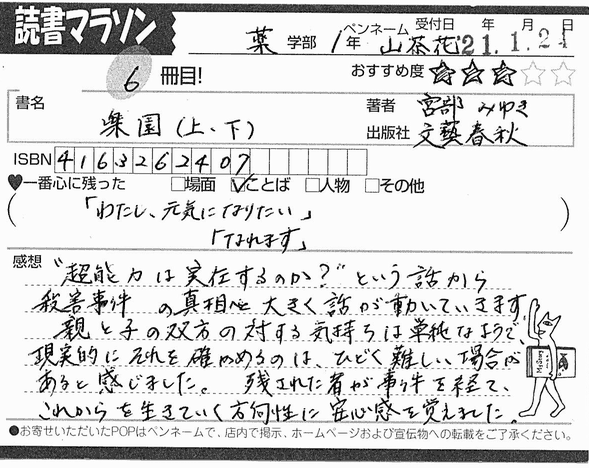 読書マラソン
薬 学部 1年 ペンネーム 山茶花 受付日 '21.1.24 年 月 日
6 冊目! おすすめ度 ★★★☆☆
書名 楽園(上、下) 著者 宮部 みゆき
出版社 文藝春秋
ISBN 4163262407
♥一番心に残った □場面 ☑ことば □人物 □その他
(「わたし、元気になりたい」
「なれます」)
感想 "超能力は実在するのか?"という話から
殺害事件の真相へ大きく話が動いていきます。
親と子の双方の対する気持ちは単純なようで、
現実的にそれを確かめるのは、ひどく難しい場合が
あると感じました。 残された者が事件を経て、
これからを生きていく方向性に安心感を覚えました。
●お寄せいただいたPOPはペンネームで、店内で掲示、ホームページおよび宣伝物への転載をご了承ください。